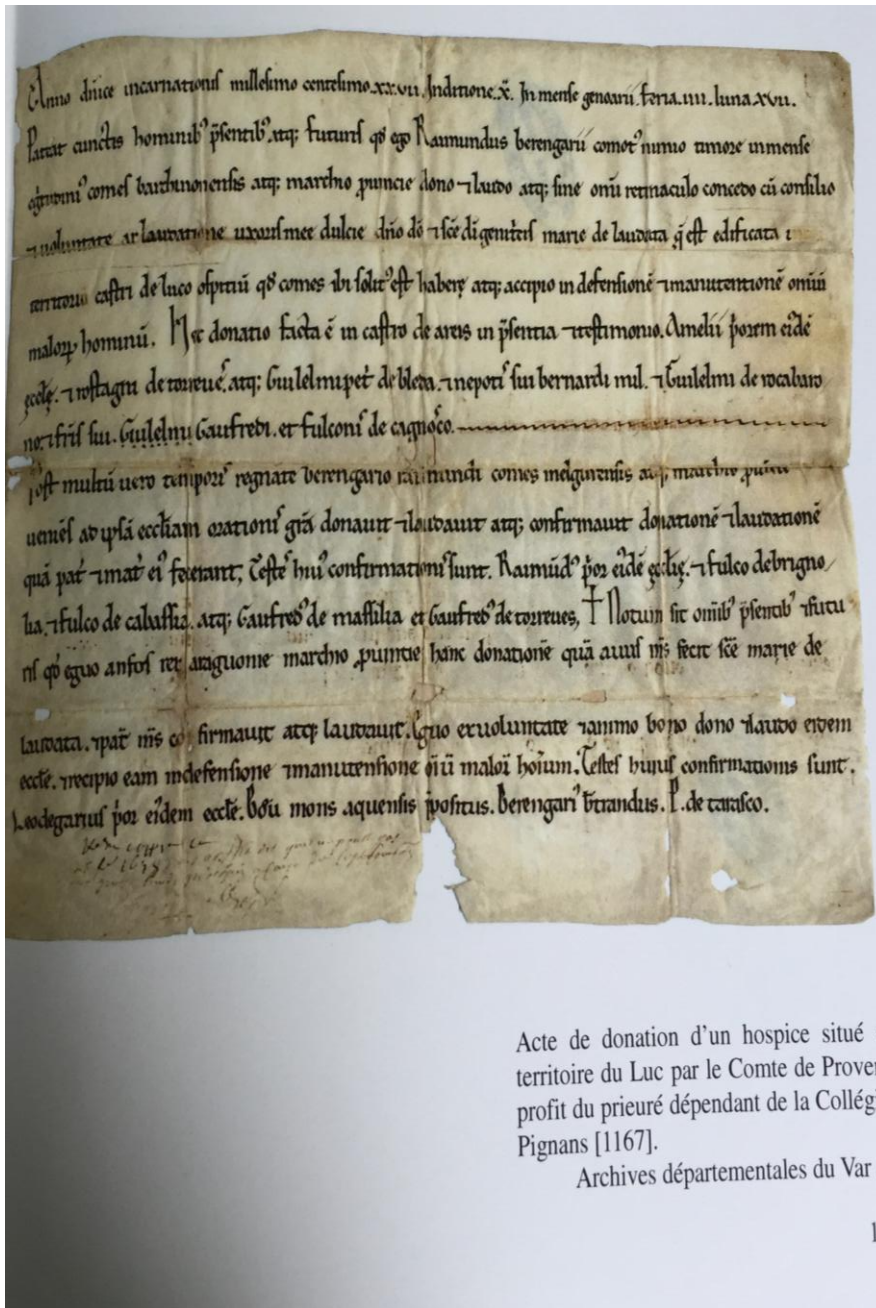 Anno dñice incarnationis millesimo centesimo.xx.vii. Inditione.x̄. In mense genoarii. feria.iiii. luna.xvii.
Pateat cunctis hominib' p̄sentib'.atq; futuris qd̄ ego Raimundus berengarii comot' nimio timore inmense
egritudini' comes barchinonensis atq; marchio ꝓuincie dono ⁊ laudo atq; sine omī retinaculo concedo cū consilio
⁊ uoluntate ac laudatione uxoris mee dulcie dño dō ⁊ scē di genitris marie de laudata q̄ est edificata i
territorio castri de luco ospitiū qd̄ comes ibi solit' est habere atq; accipio in defensionē ⁊ manutentionē omiū
maloꝝ hominū. Hec donatio facta ē in castro de areis in p̄sentia ⁊ testimonio. Amelii p̄orem eidē
eccłę. ⁊ rostagni de torreues. atq; Guilelmi pet̄ de bleda. ⁊ nepoti' sui bernardi mil. ⁊ Guilelmi de rocabaro
no ⁊ fr̄is sui. Guilelmi Gaufredi. et fulconis de cagnoco.
post multū uero tempori' regnāte berengario raimundi comes melgurensis atq; marchio ꝓuin
ueniēs ad ipsā eccliam orationis grā donauit ⁊ laudauit atq; confirmauit donationē ⁊ laudationē
quā pat̄ ⁊ mat̄ ei' fecerant; Teste' hui' confirmationi' sunt. Raimūd' p̄or eidē ecclię. ⁊ fulco debrigno
lia. ⁊ fulco de cabassia. atq; Gaufred' de massilia et Gaufred' de torreues, † Notum sit omib' p̄sentib' ⁊ futu
ris qd̄ eguo anfos rex araguonie marchio ꝓuincie hanc donationē quā auus m̄s fecit scē marie de
laudata. ⁊ pat̄ m̄s cofirmauit atq; laudauit. Eguo ex uoluntate ⁊ animo bono dono ⁊ laudo eidem
eccłe. ⁊ recipio eam indefensione ⁊ manutensione oiū maloꝝ hoium. Testes huius confirmationis sunt.
Leodegarius p̄or eidem eccłe. Bđu mons aquensis p̄positus. Berengari' b̄trandus. P. de tarasco.
Acte de donation d'un hospice situé
territoire du Luc par le Comte de Prove
profit du prieuré dépendant de la Collég
Pignans [1167].
Archives départementales du Var